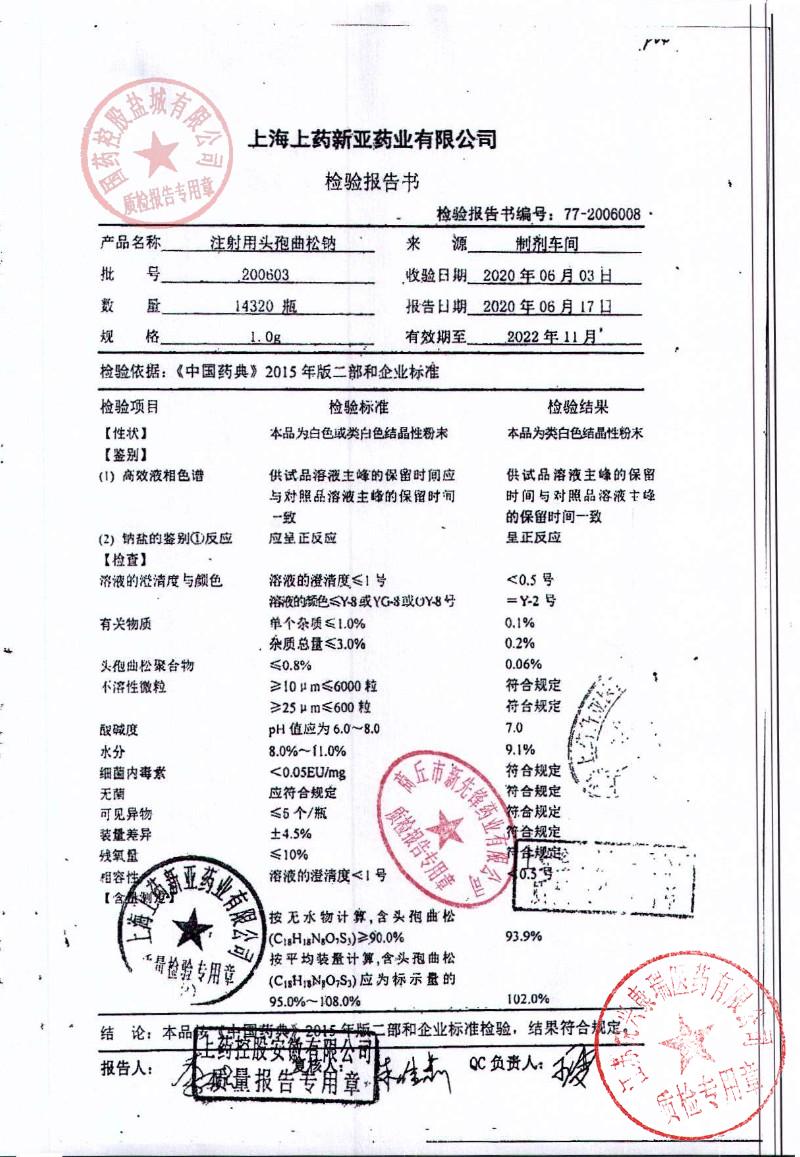 国药控股盐城有限公司
质检报告专用章
上海上药新亚药业有限公司
检验报告书
检验报告书编号：77-2006008
产品名称 注射用头孢曲松钠 来 源 制剂车间
批 号 200603 收验日期 2020 年 06 月 03 日
数 量 14320 瓶 报告日期 2020 年 06 月 17 日
规 格 1.0g 有效期至 2022 年 11 月
检验依据：《中国药典》2015 年版二部和企业标准
检验项目 检验标准 检验结果
【性状】 本品为白色或类白色结晶性粉末 本品为类白色结晶性粉末
【鉴别】
(1) 高效液相色谱 供试品溶液主峰的保留时间应 供试品溶液主峰的保留
与对照品溶液主峰的保留时间 时间与对照品溶液主峰
一致 的保留时间一致
(2) 钠盐的鉴别①反应 应呈正反应 呈正反应
【检查】
溶液的澄清度与颜色 溶液的澄清度≤1 号 <0.5 号
溶液的颜色≤Y-8 或 YG-8 或 OY-8 号 =Y-2 号
有关物质 单个杂质≤1.0% 0.1%
杂质总量≤3.0% 0.2%
头孢曲松聚合物 ≤0.8% 0.06%
不溶性微粒 ≥10μm≤6000 粒 符合规定
≥25μm≤600 粒 符合规定
酸碱度 pH 值应为 6.0～8.0 7.0
水分 8.0%～11.0% 9.1%
细菌内毒素 <0.05EU/mg 符合规定
无菌 应符合规定 符合规定
可见异物 ≤5 个/瓶 符合规定
装量差异 ±4.5% 符合规定
残氧量 ≤10% 符合规定
相容性 溶液的澄清度<1 号 <0.5 号
【含量测定】
按无水物计算,含头孢曲松
(C₁₈H₁₈N₈O₇S₃)≥90.0% 93.9%
按平均装量计算,含头孢曲松
(C₁₈H₁₈N₈O₇S₃)应为标示量的
95.0%～108.0% 102.0%
商丘市新先锋药业有限公司
质检报告专用章
上海上药新亚药业有限公司
质量检验专用章
结 论：本品按《中国药典》2015 年版二部和企业标准检验，结果符合规定。
报告人： 复核人： QC 负责人：
上药控股安徽有限公司
质量报告专用章
医药有限公司
质检专用章